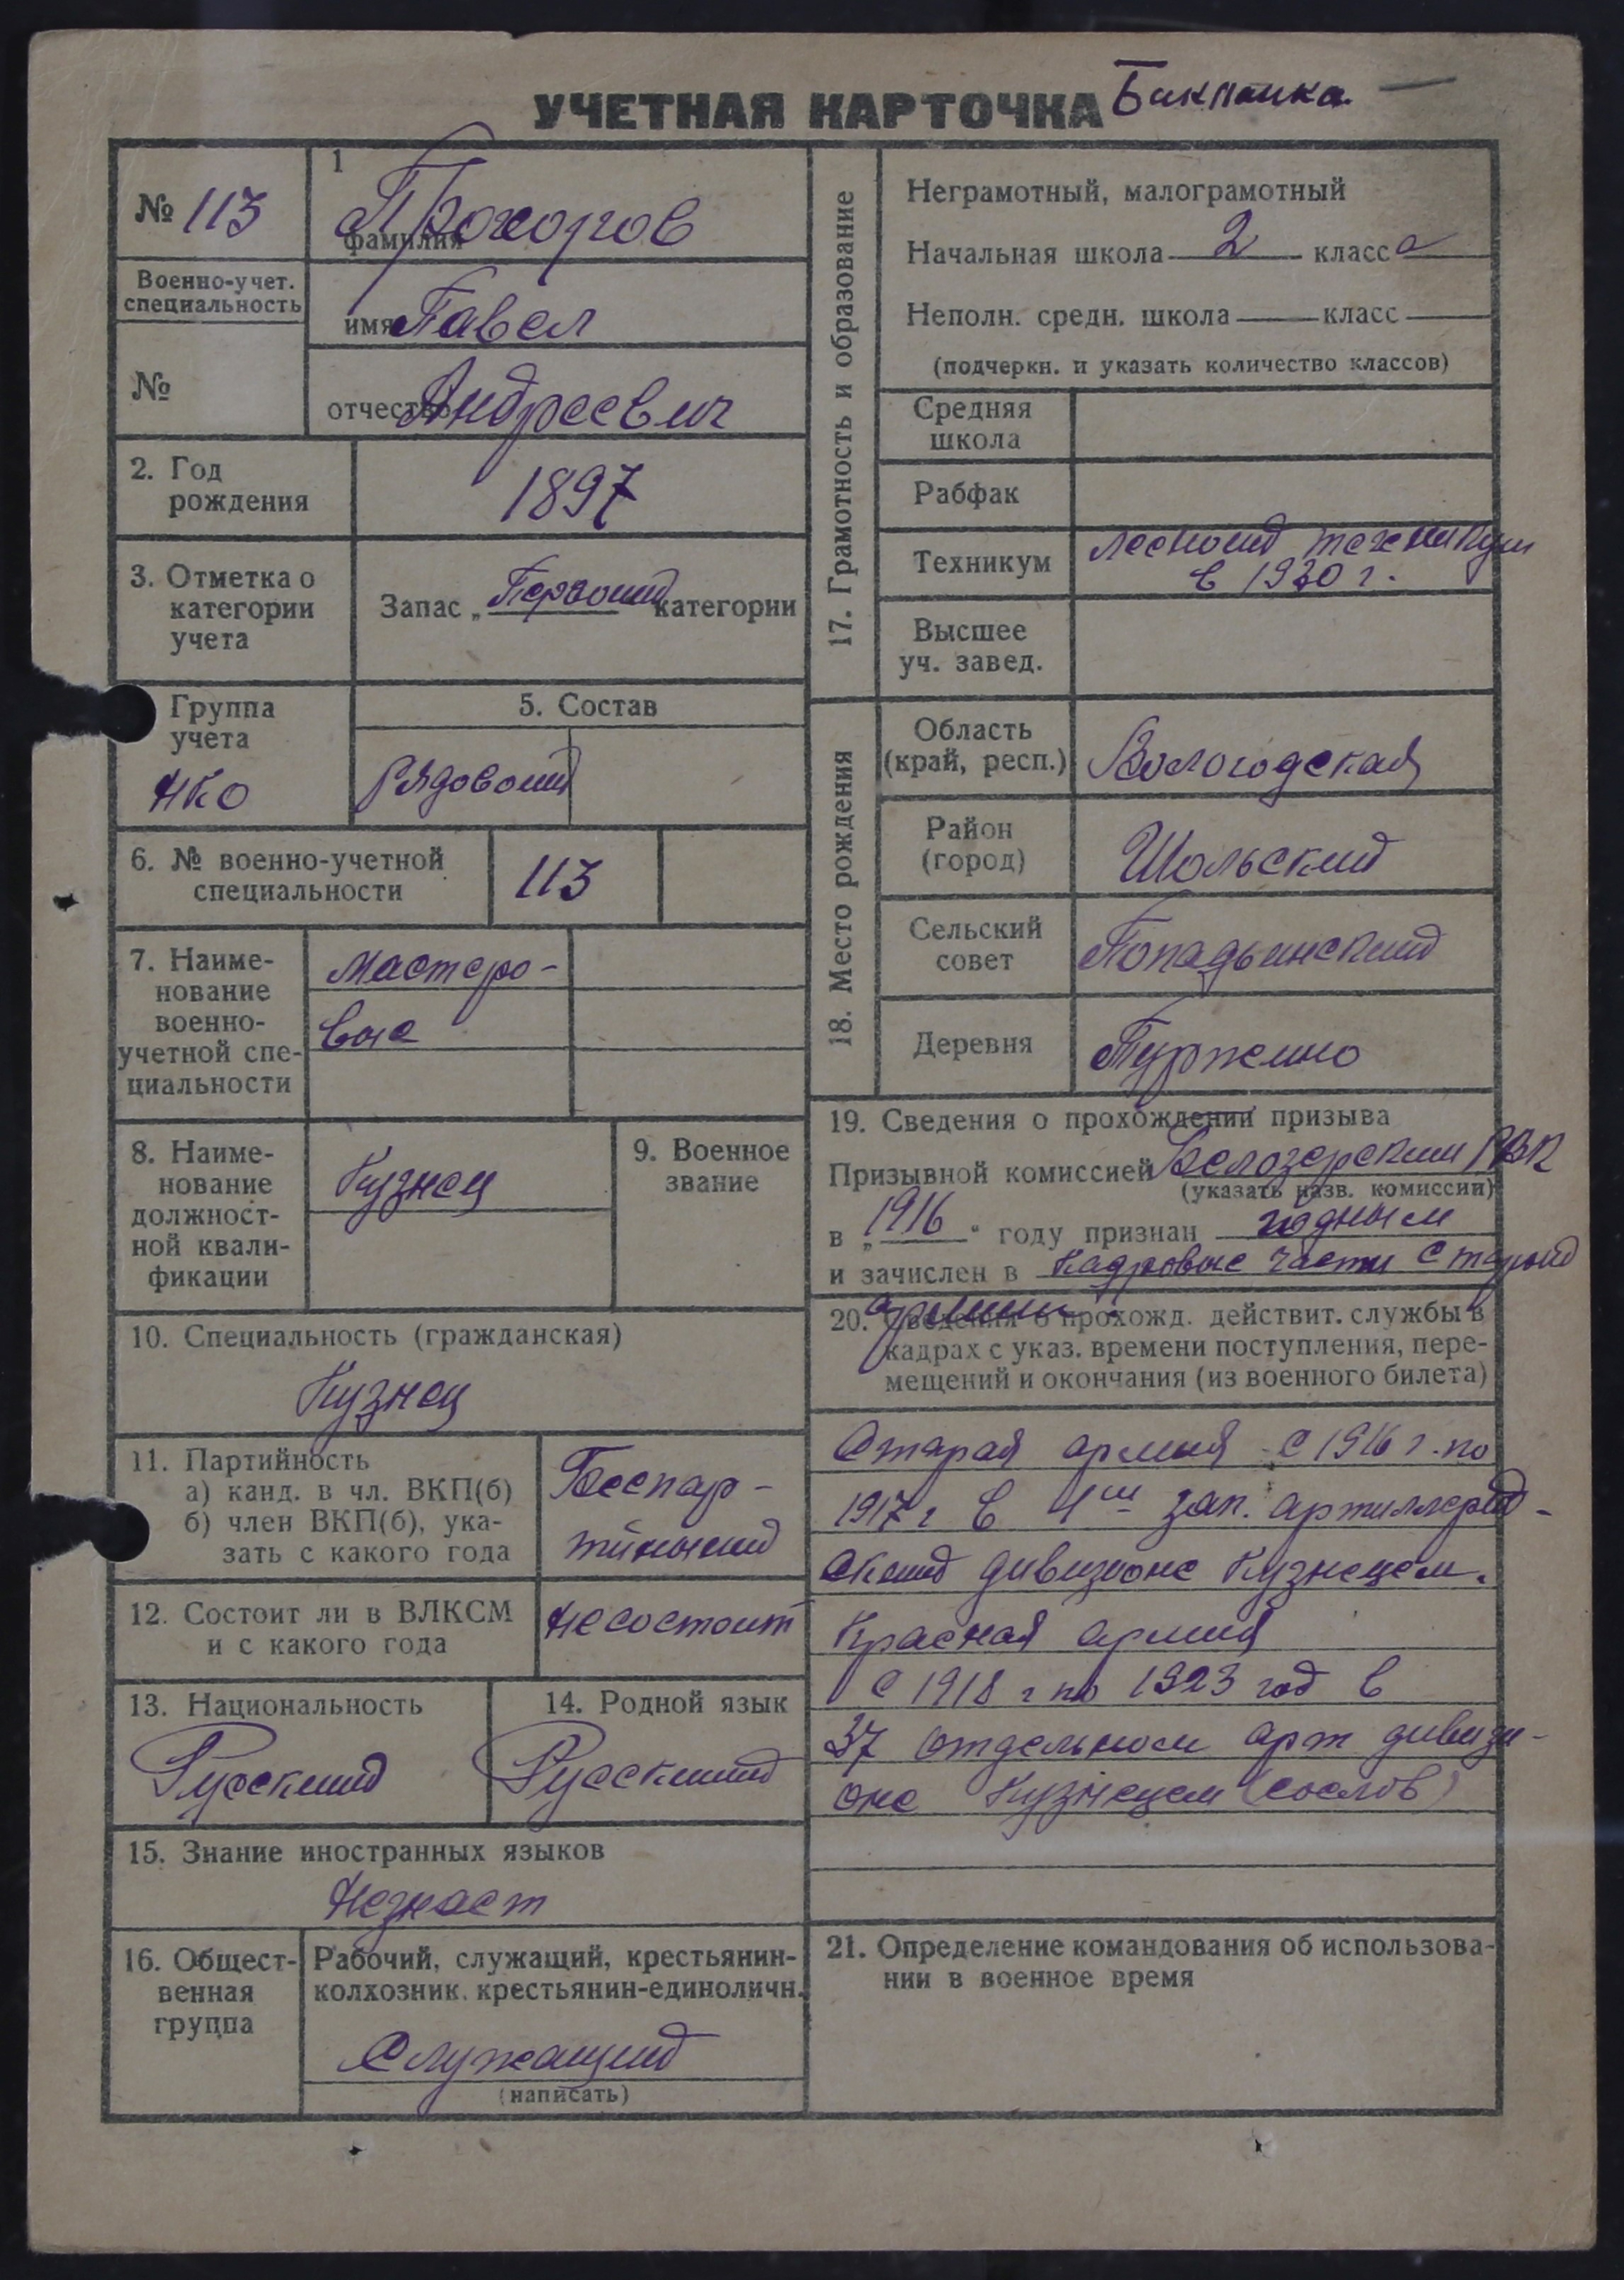 УЧЕТНАЯ КАРТОЧКА
№ 113
1
Прохоров
фамилия
Военно-учет.
специальность
имя Павел
№
отчество Андреевич
2. Год
рождения
1897
3. Отметка о
категории
учета
Запас „ Первой категории
Группа
учета
НКО
5. Состав
Рядовой
6. № военно-учетной
специальности
113
7. Наиме-
нование
военно-
учетной спе-
циальности
Мастеро-
вые
8. Наиме-
нование
должност-
ной квали-
фикации
Кузнец
9. Военное
звание
10. Специальность (гражданская)
Кузнец
11. Партийность
а) канд. в чл. ВКП(б)
б) член ВКП(б), ука-
зать с какого года
Беспар-
тийный
12. Состоит ли в ВЛКСМ
и с какого года
Не состоит
13. Национальность
Русский
14. Родной язык
Русский
15. Знание иностранных языков
Незнает
16. Общест-
венная
группа
Рабочий, служащий, крестьянин-
колхозник, крестьянин-единоличн.
Служащий
(написать)
17. Грамотность и образование
Неграмотный, малограмотный
Начальная школа 2 класса
Неполн. средн. школа класс
(подчеркн. и указать количество классов)
Средняя
школа
Рабфак
Техникум
Лесной техникум
в 1930 г.
Высшее
уч. завед.
18. Место рождения
Область
(край, респ.)
Вологодская
Район
(город)
Шольский
Сельский
совет
Попадьинский
Деревня
19. Сведения о прохождении призыва
Призывной комиссией Белозерский РВК
(указать назв. комиссии)
в „ 1916 “ году признан годным
и зачислен в Кадровые части старой
армии
20. Сведения о прохожд. действит. службы в
кадрах с указ. времени поступления, пере-
мещений и окончания (из военного билета)
Старая армия с 1916 г. по
1917 г в 1ой зап. артиллерий-
ский дивизионе Кузнецем.
Красная армия
с 1918 г по 1923 год в
37 отдельном арт дивизи-
оне Кузнецем (сослов)
21. Определение командования об использова-
нии в военное время